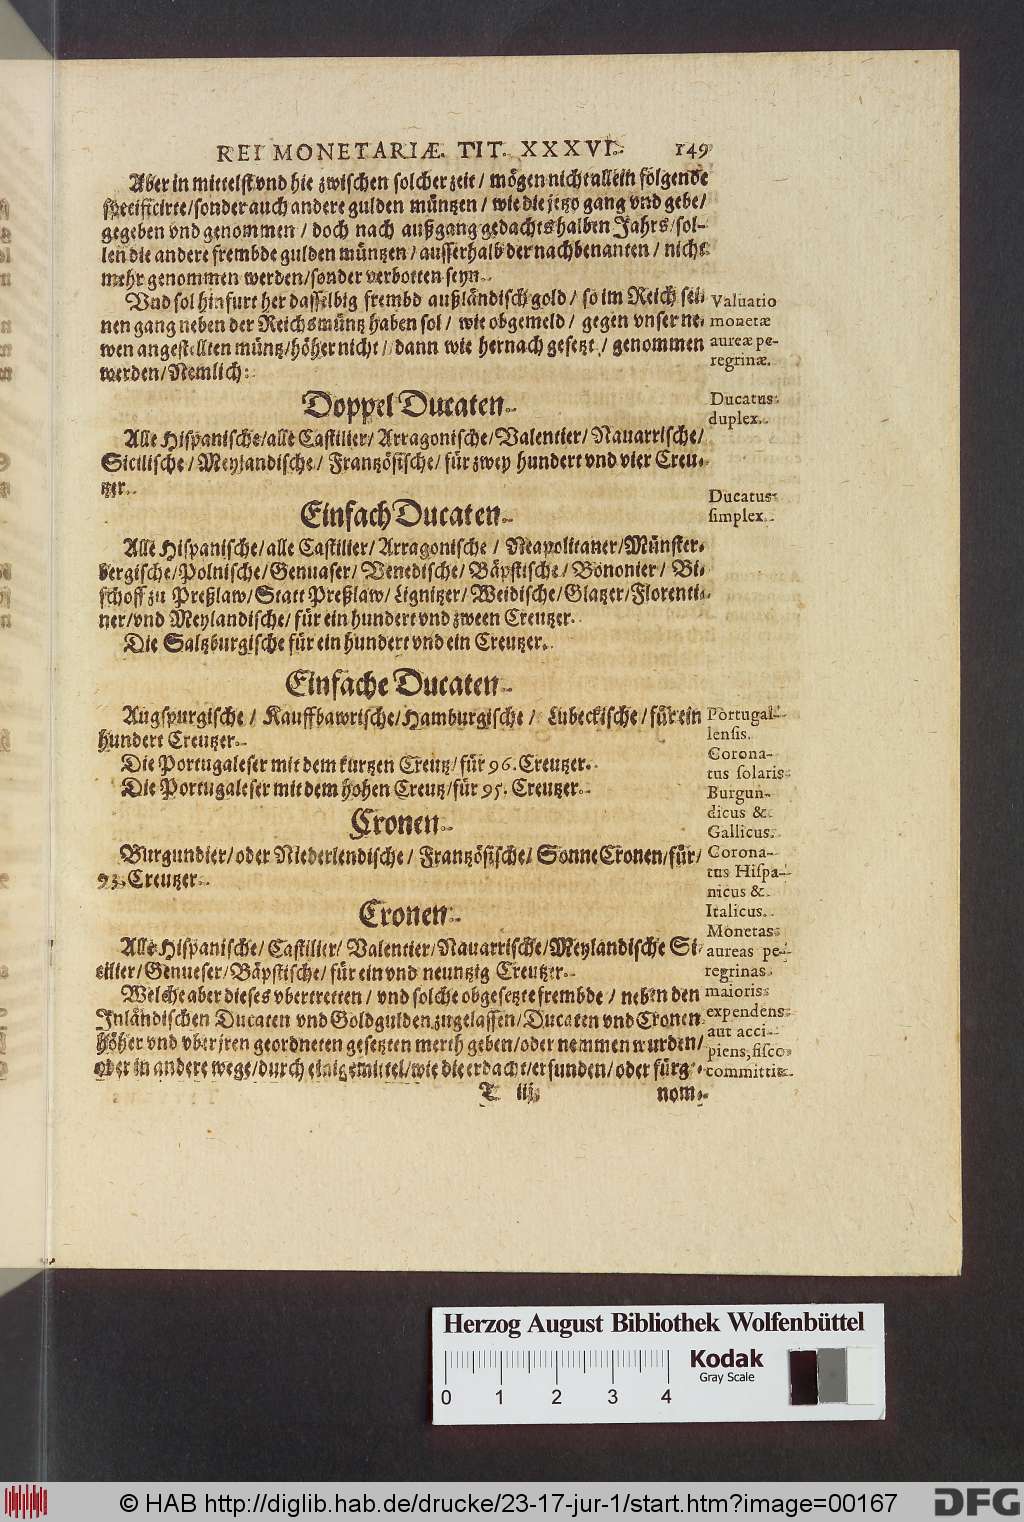 REI MONETARIÆ. TIT. XXXVI. 149
Aber in mittelst vnd hie zwischen solcher zeit / mögen nicht allein folgende
specificirte / sonder auch andere gulden müntzen / wie die jetzo gang vnd gebe /
gegeben vnd genommen / doch nach außgang gedachts halben Jahrs / sol-
len die andere frembde gulden müntzen / ausserhalb der nachbenanten / nicht
mehr genommen werden / sonder verbotten seyn.
Vnd sol hinfurt her dasselbig frembd außländisch gold / so im Reich sei-
nen gang neben der Reichsmüntz haben sol / wie obgemeld / gegen vnser ne-
wen angestellten müntz / höher nicht / dann wie hernach gesetzt / genommen
werden / Nemlich:
Valuatio
monetæ
aureæ pe-
regrinæ.
Doppel Ducaten.
Ducatus
duplex.
Alle Hispanische / alle Castilier / Arragonische / Valentier / Nauarrische /
Sicilische / Meylandische / Frantzösische / für zwey hundert vnd vier Creu-
tzer.
Einfach Ducaten.
Ducatus
simplex.
Alle Hispanische / alle Castilier / Arragonische / Neapolitaner / Münster-
bergische / Polnische / Genuaser / Venedische / Bäpstische / Bononier / Bi-
schoff zu Preßlaw / Statt Preßlaw / Lignitzer / Weidische / Glatzer / Florenti-
ner / vnd Meylandische / für ein hundert vnd zween Creutzer.
Die Saltzburgische für ein hundert vnd ein Creutzer.
Einfache Ducaten.
Augspurgische / Kauffbawrische / Hamburgische / Lubeckische / für ein
hundert Creutzer.
Die Portugaleser mit dem kurtzen Creutz / für 96. Creutzer.
Die Portugaleser mit dem hohen Creutz / für 95. Creutzer.
Portugal-
lensis.
Corona-
tus solaris
Burgun-
dicus &
Gallicus.
Corona-
tus Hispa-
nicus &
Italicus.
Monetas
aureas pe-
regrinas
maioris
expendens
aut acci-
piens, fisco
committit.
Cronen.
Burgundier / oder Niederlendische / Frantzösische / Sonne Cronen / für /
93. Creutzer.
Cronen.
Alle Hispanische / Castilier / Valentier / Nauarrische / Meylandische Si-
cilier / Genueser / Bäpstische / für ein vnd neuntzig Creutzer.
Welche aber dieses vbertretten / vnd solche obgesetzte frembde / neben den
Inländischen Ducaten vnd Goldgulden zugelassen / Ducaten vnd Cronen
höher vnd vber jren geordneten gesetzten werth geben / oder nemmen wurden /
oder in andere wege / durch einige mittel / wie die erdacht / erfunden / oder fürg
T iij nom-
Herzog August Bibliothek Wolfenbüttel
Kodak
Gray Scale
0 1 2 3 4
© HAB http://diglib.hab.de/drucke/23-17-jur-1/start.htm?image=00167
DFG